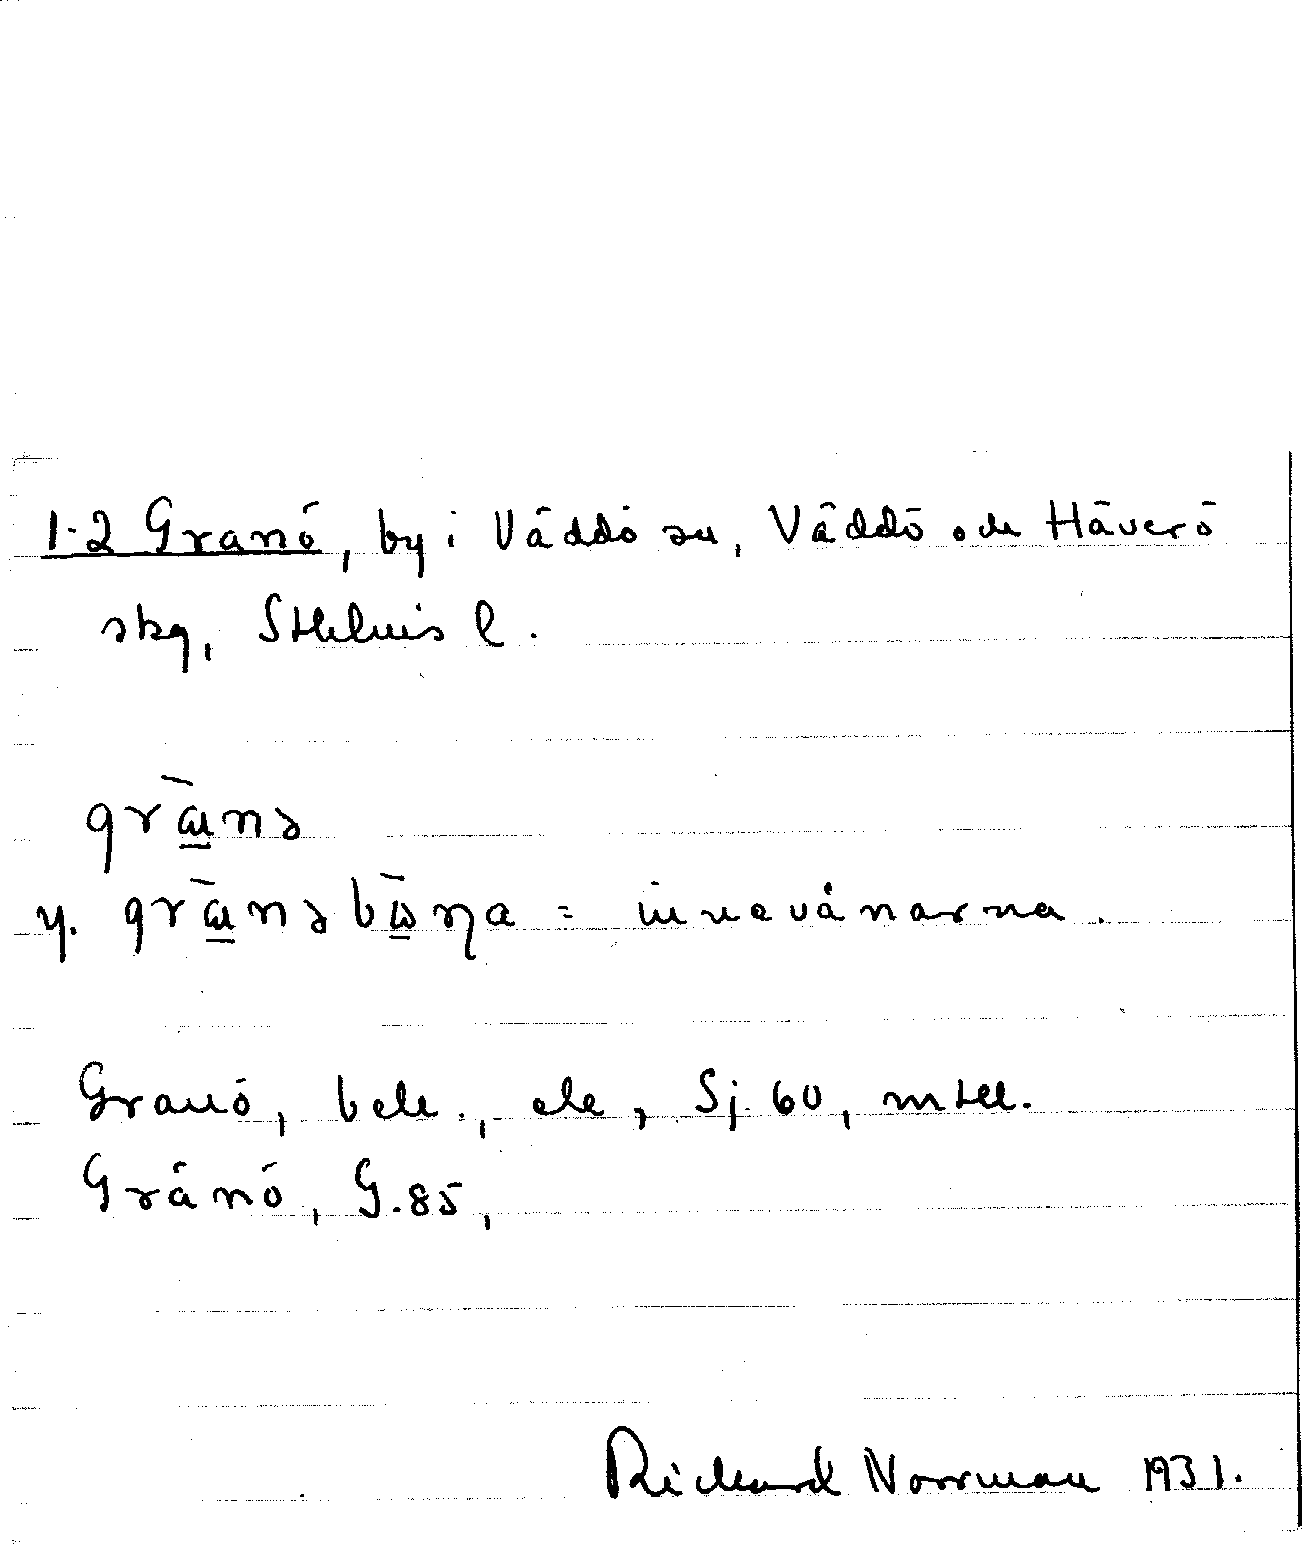 1-2 Granö, by i Väddö sn, Väddö och Häverö
skg, Sthlms l.
grɑ̀nə
y. grɑ̀nəbωɳa = innevånarna.
Granö, beb., ek, Sj. 60, mtll.
Gränö, G. 85,
Richard Norrman 1931.